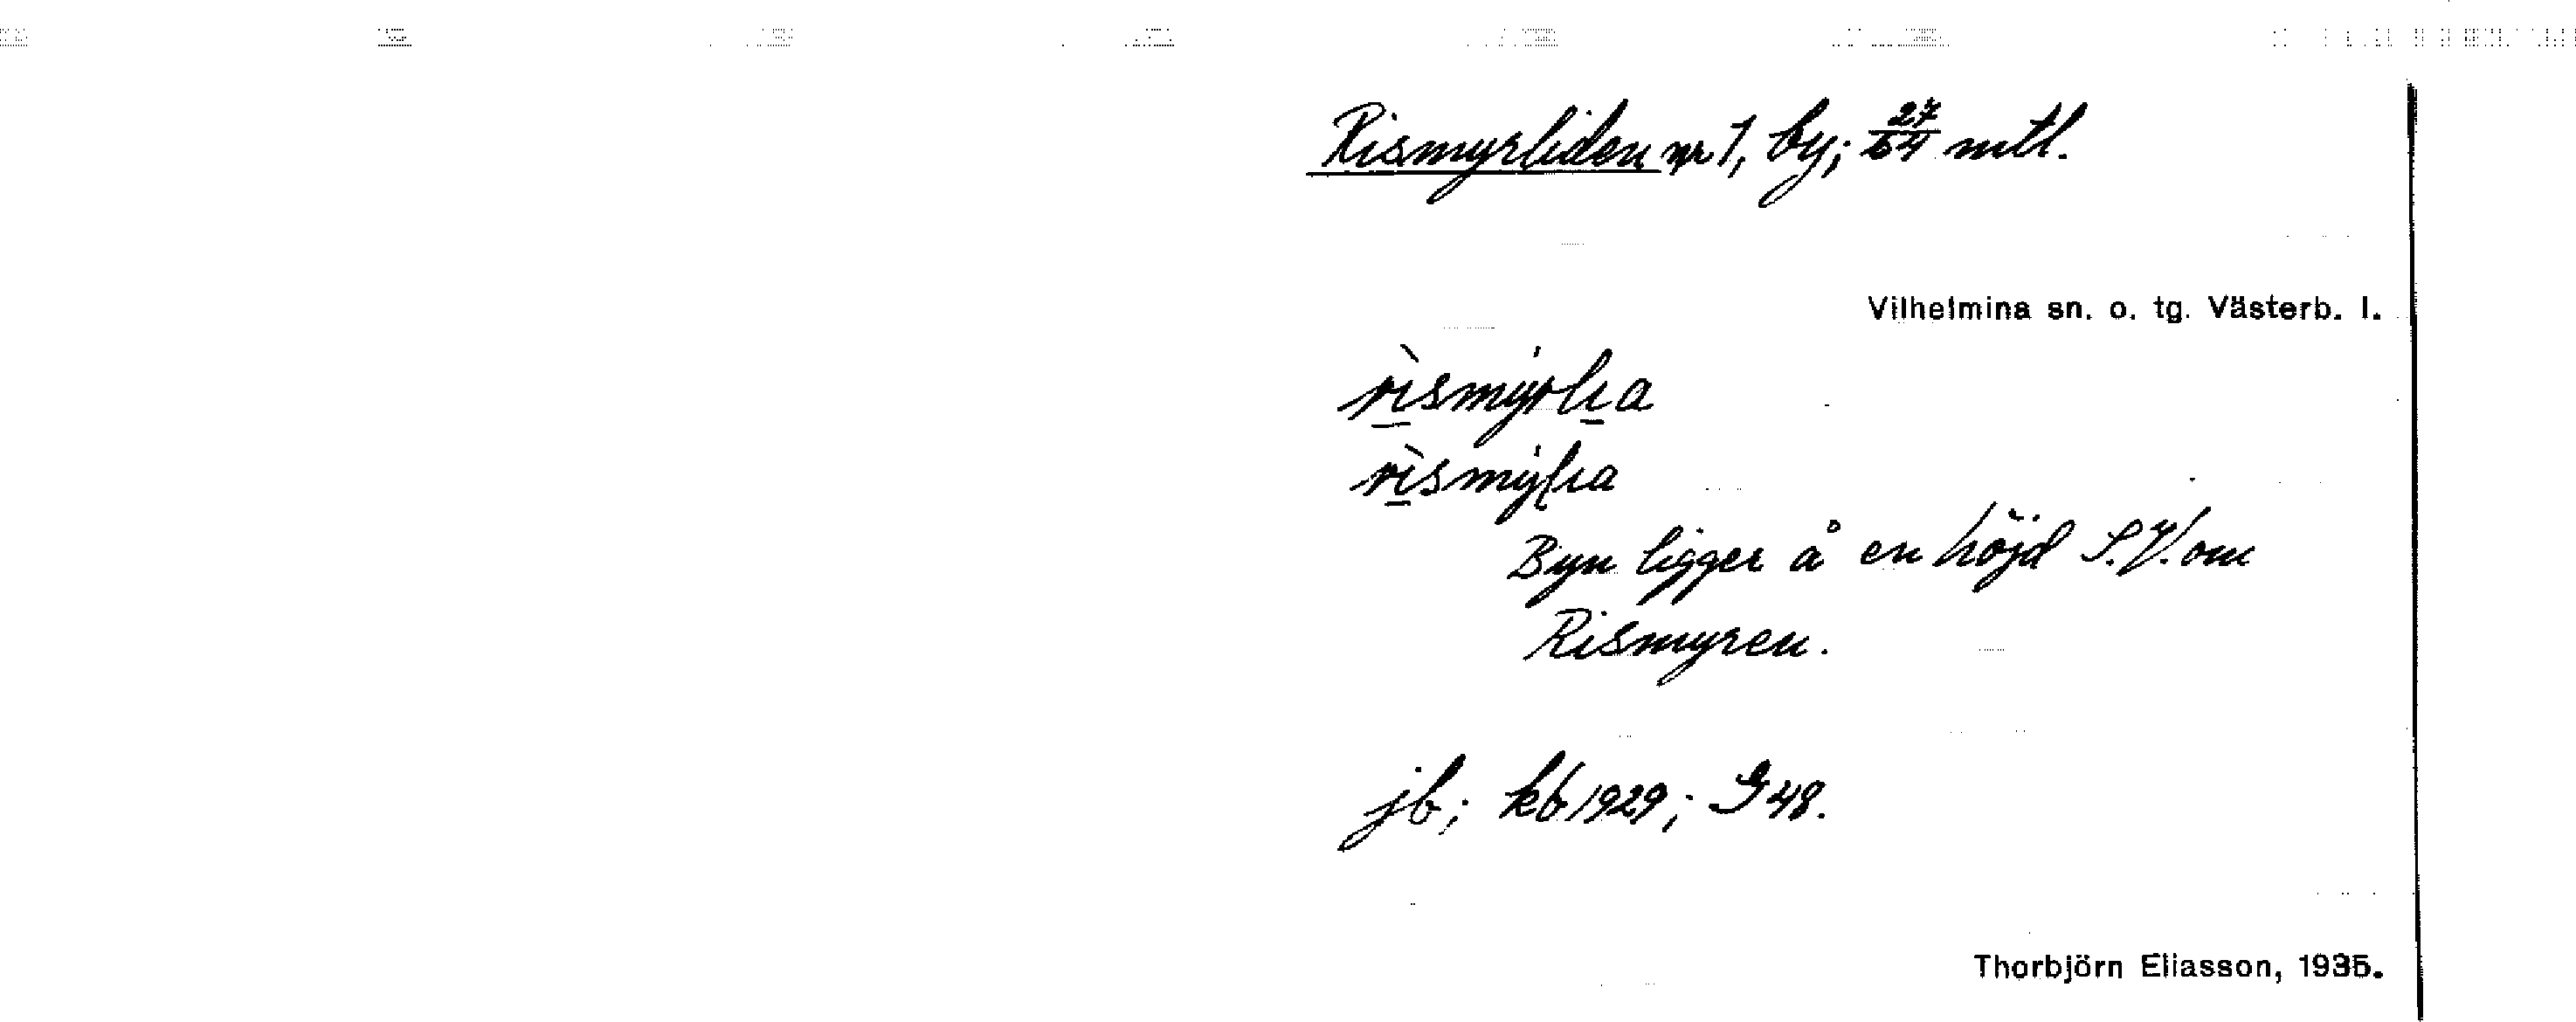 Rismyrliden nr 1, by; 27/64 mtl.
Vilhelmina sn. o. tg. Västerb. l.
rìsmyrlıa
rìsmyḷıa
Byn ligger å en höjd S.V. om
Rismyren.
jb; kb 1929; G 48.
Thorbjörn Eliasson, 1935.